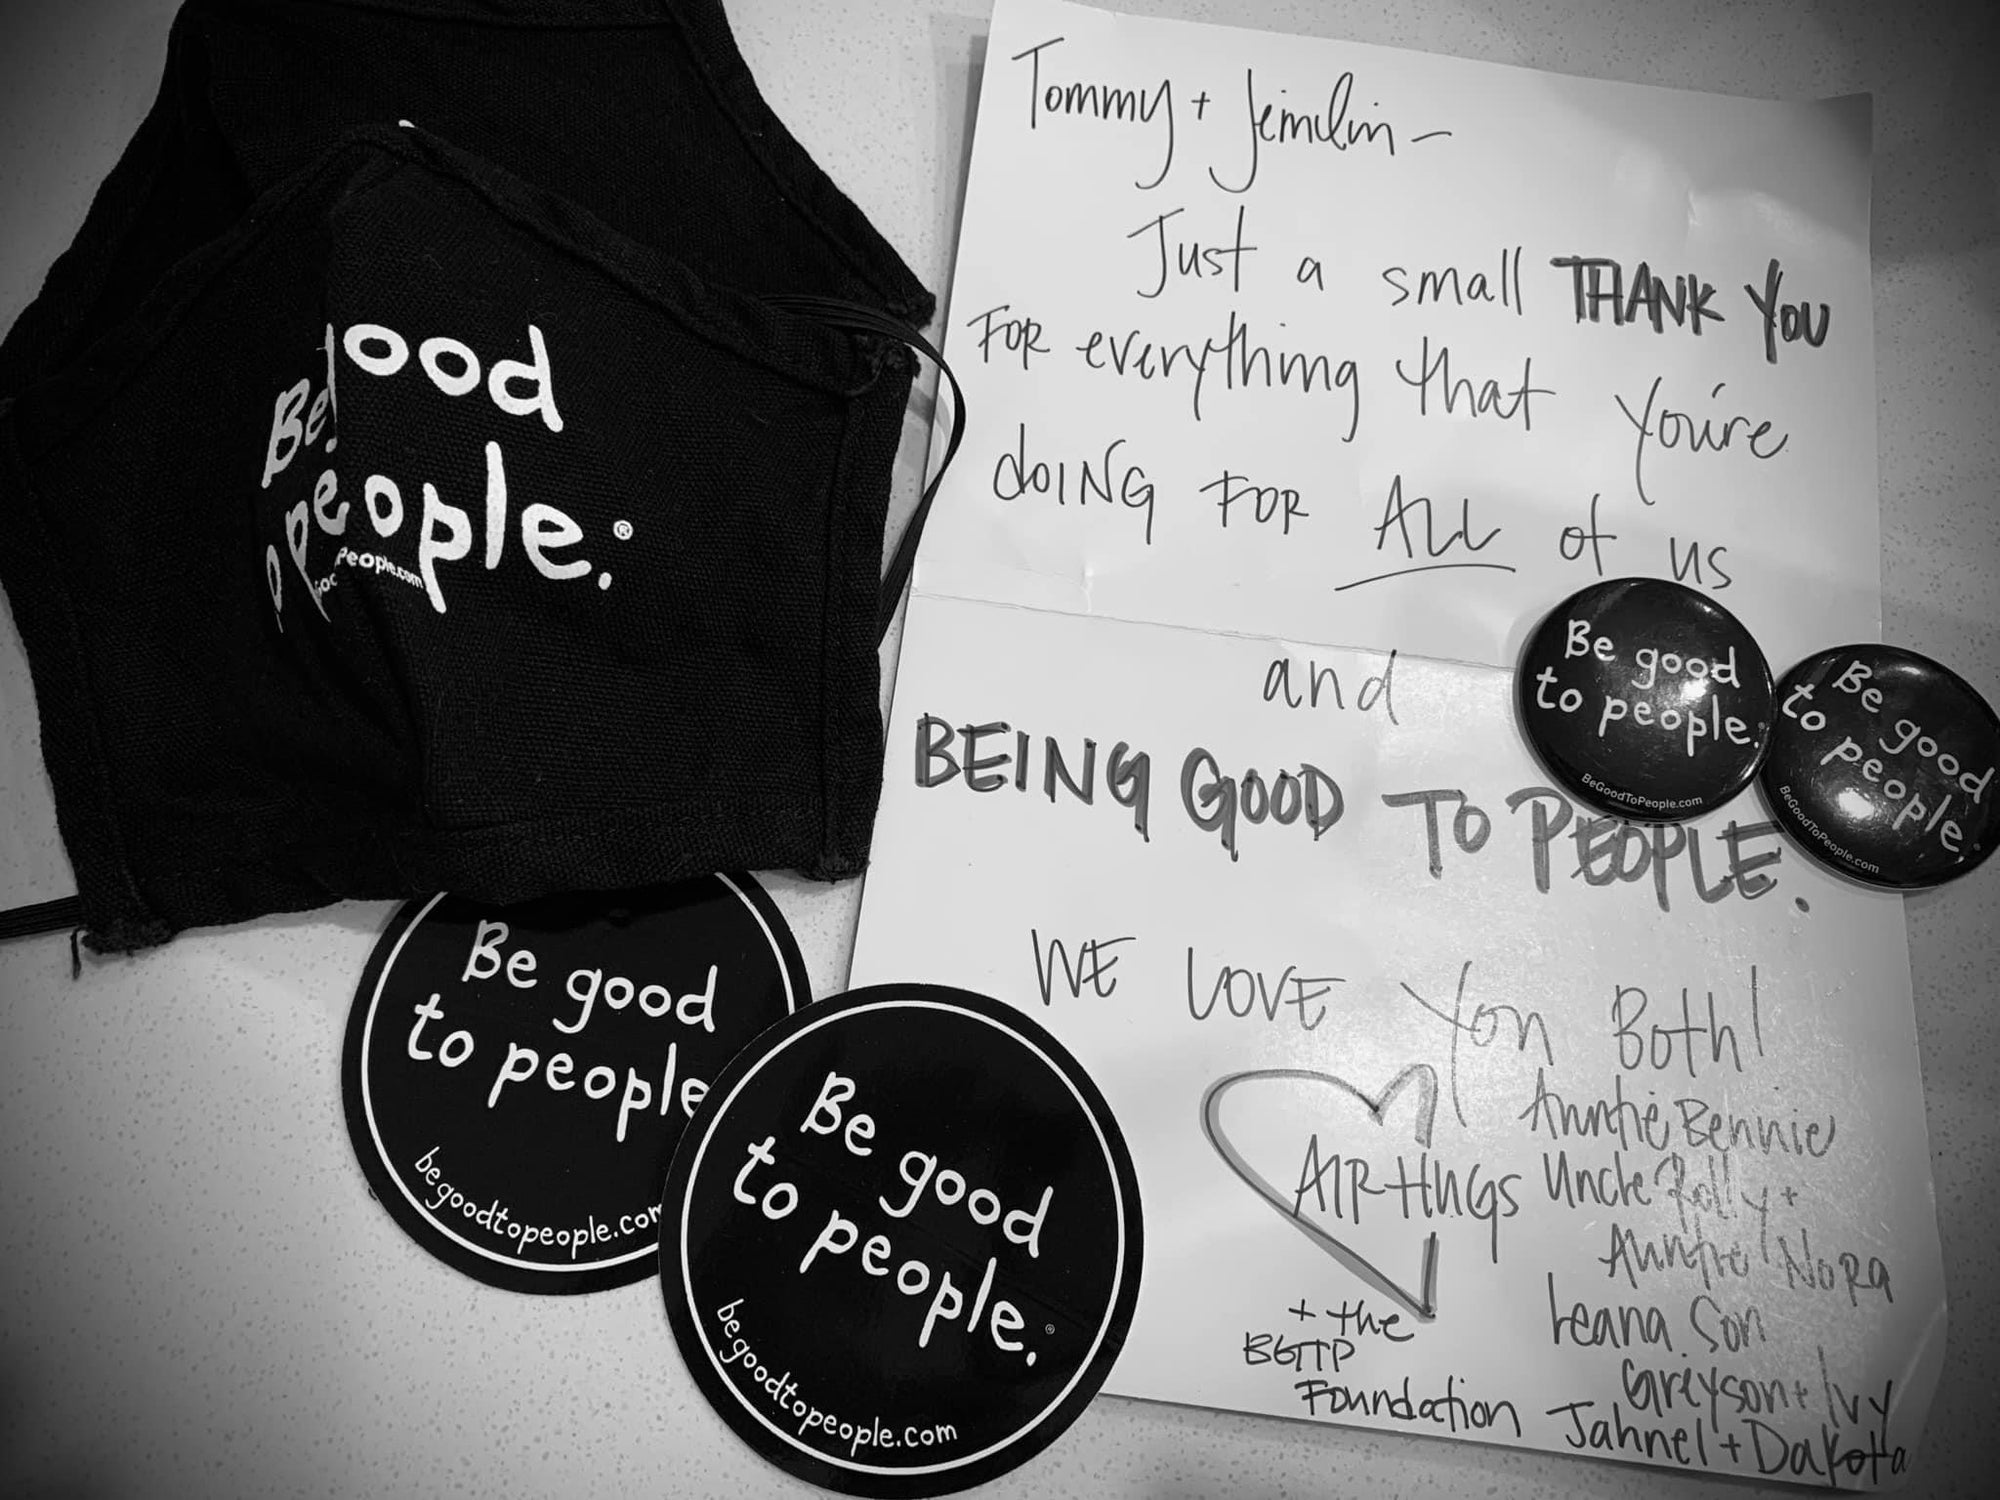 Be good
people.®
People.com
Tommy + Jeimilin –
Just a small THANK YOU
FOR everything that you're
doing FOR ALL of us
and
BEING GOOD TO PEOPLE.
WE LOVE YOU BOTH!
AIR HUGS
Auntie Bennie
Uncle Rolly +
Auntie Nora
Leana Son
Greyson + Ivy
Jahnel + Dakota
+ the
BGTTP
Foundation
Be good
to people.
BeGoodToPeople.com
Be good
to people.
BeGoodToPeople.com
Be good
to people
begoodtopeople.com
Be good
to people.®
begoodtopeople.com